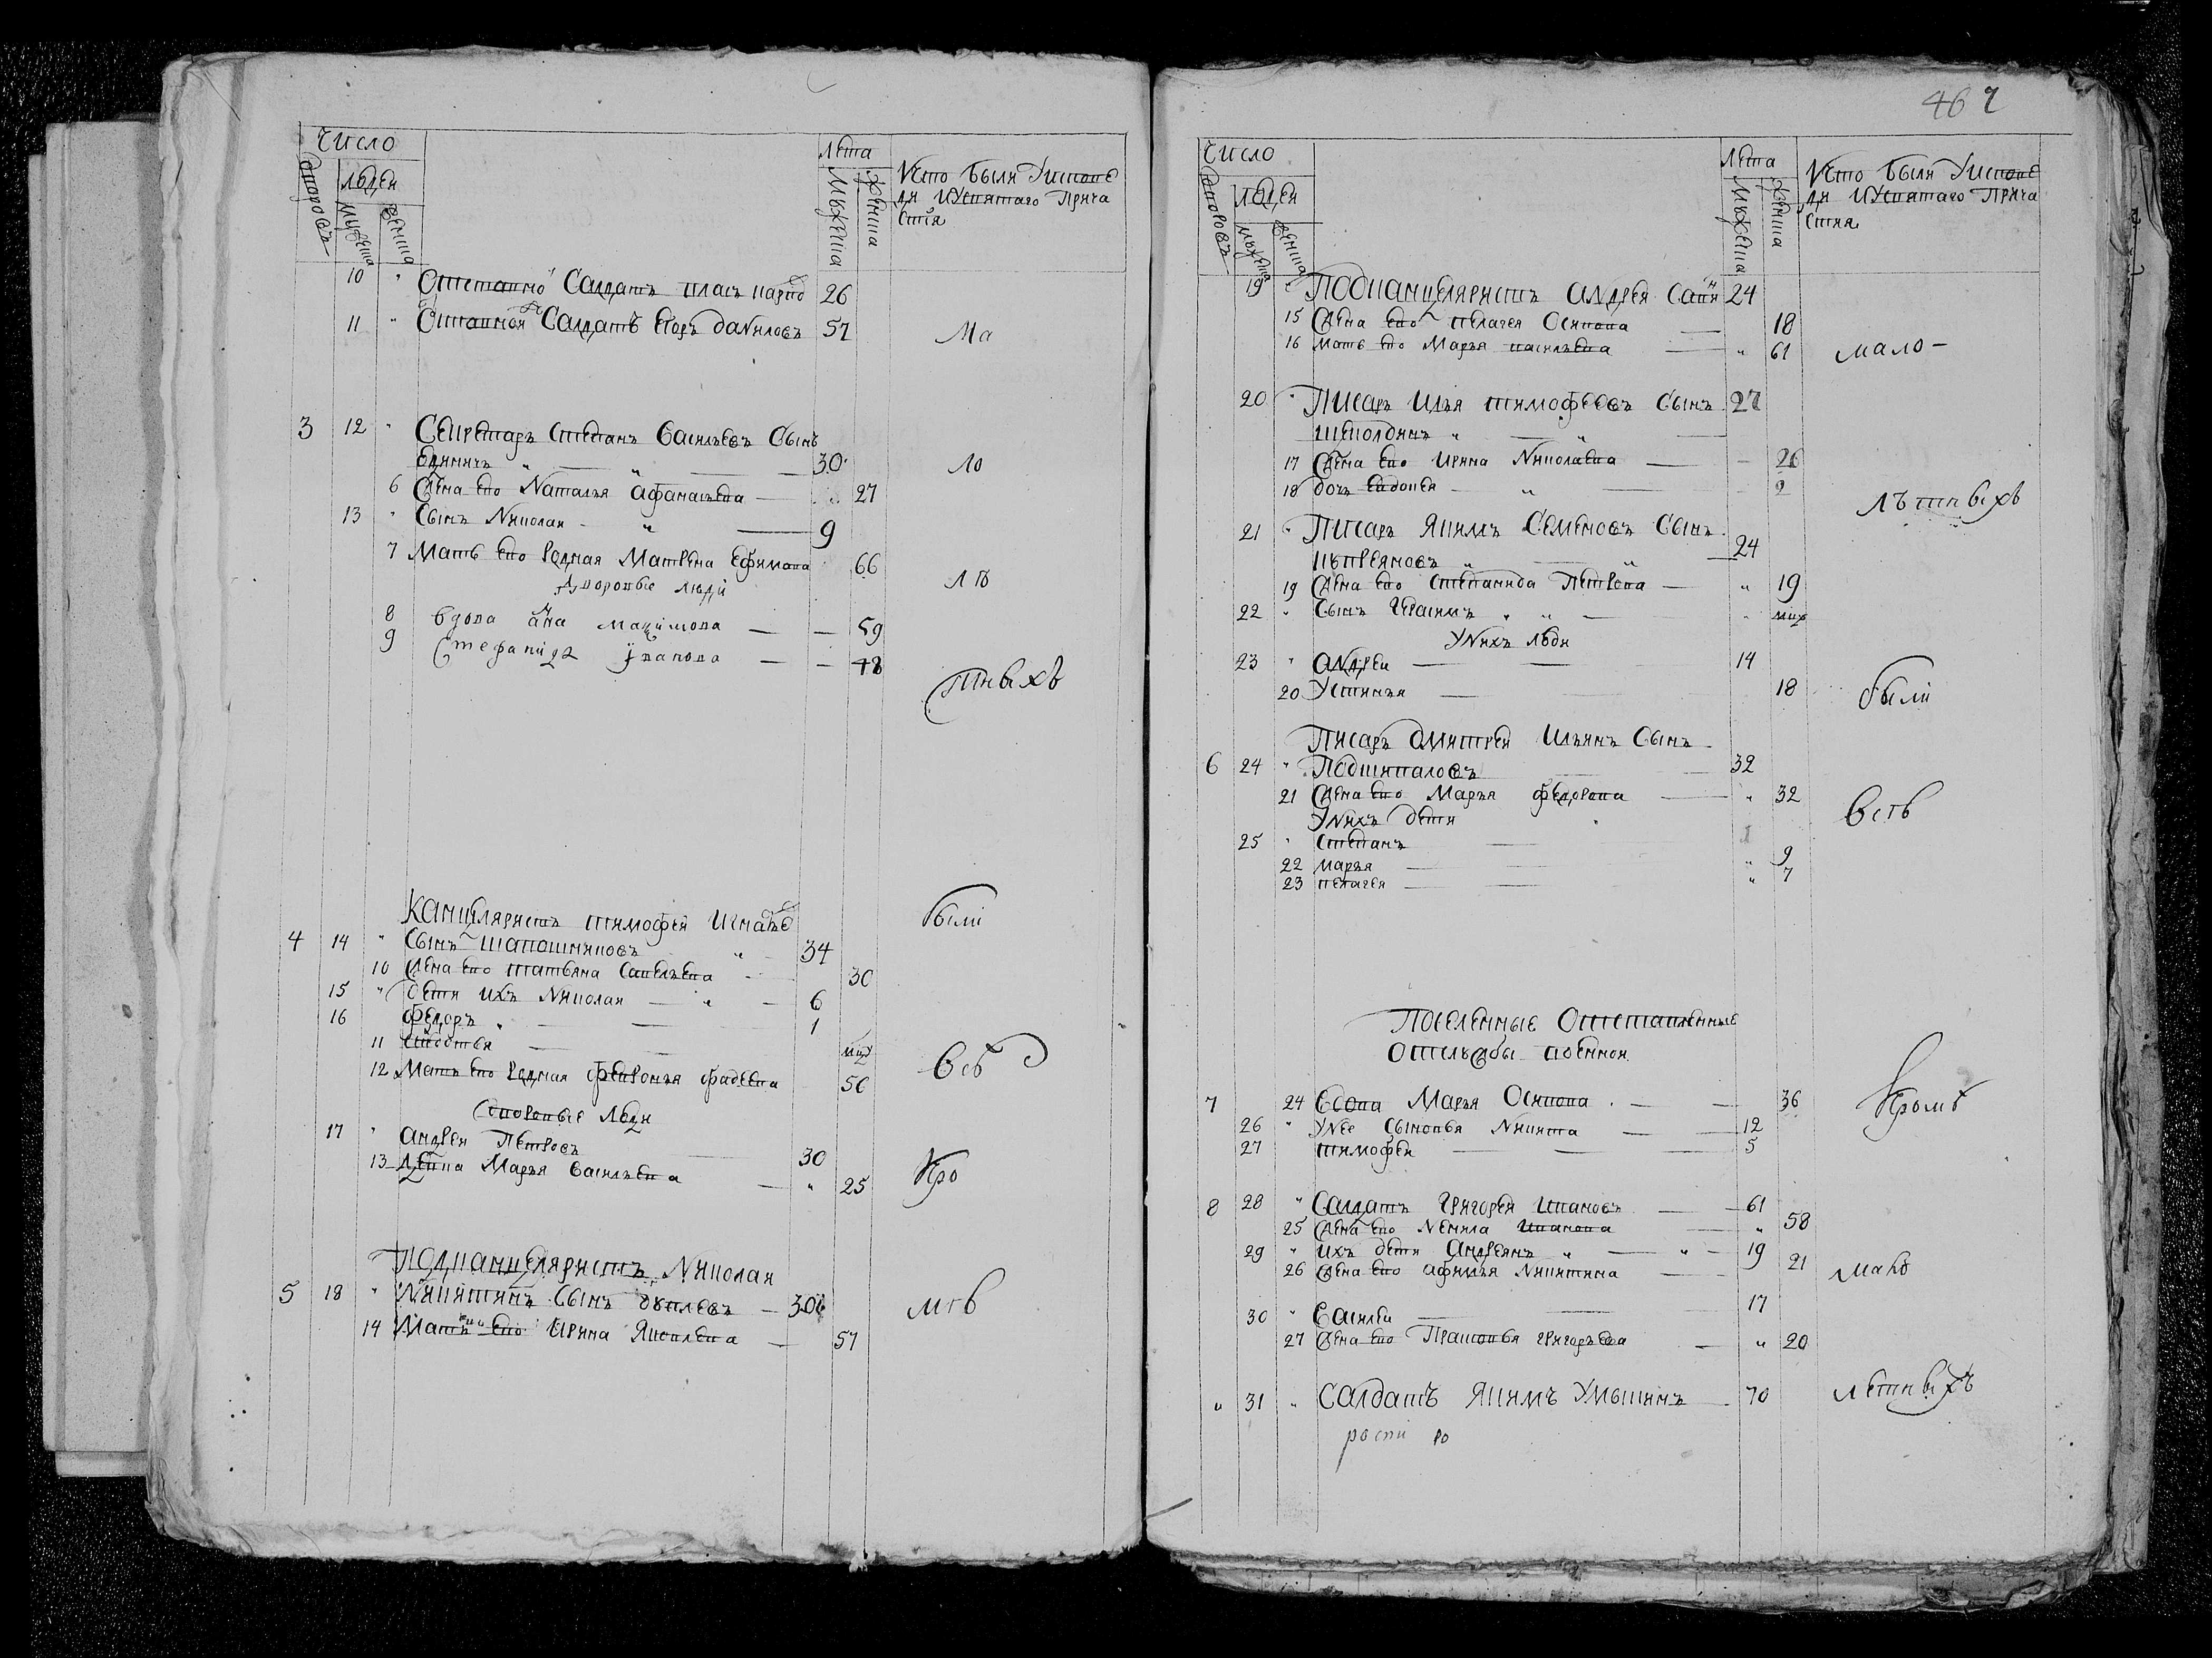 число
лета
дворовъ
людей
мужеска
женска
мужеска
женска
Кто были Уиспове
ди ИУсвятаго Прича
стія
10 Отставно Салдатъ 26
11 Отставной Салдатъ Егоръ даниловъ 57
Ма
3 12 Секретарь степанъ василъевъ Сынъ
30
ло
6 Жена ево Наталъя афанасъева 27
13 Сынъ Николаи 9
7 Мать ево родная Матрена Ефимова 66
лѣ
Дворовые люди
8 вдова анна мазимова 59
9 Стефанида івановна 48
тныхъ
Канцеляристъ тимофеи Игнатъе
были
4 14 Сынъ шапошниковъ 34
10 Жена ево татьяна Савелъева 30
15 дети ихъ Николаи 6
16 федоръ 1
11
Всѣ
12 Мать ево родная февронъя фадеева 56
дворовые люди
17 андреи Петровъ 30
13 девка Маръя василъева 25
Кро
Подканцеляристъ Николаи
5 18 Никитинъ Сынъ 30
мѣ
14 Мать ево Ирина Яковлева 57
467
число
лета
дворовъ
людей
мужеска
женска
мужеска
женска
Кто были Уиспове
ди ИУсвятаго Прича
стия
19 Подканцеляристъ андреи 24
15 Жена ево пелагея Осипова 18
16 мать ево Маръя василъева 61
мало-
20 Писарь Илъя тимофеевъ Сынъ 27
17 Жена ево Ирина Николаева 26
18 дочь евдокея 2
лѣтныхъ
21 Писарь Якимъ Семеновъ Сынъ
куприяновъ 24
19 Жена ево степанида Петрова 19
22 Сынъ Герасимъ
Унихъ люди
23 андреи 14
20 Устинъя 18
были
Писарь дмитреи Илъинъ Сынъ
6 24 Подшиваловъ 32
21 Жена ево Маръя федорова 32
Всѣ
Унихъ дети
25 Степанъ 1
22 маръя 9
23 пелагея 7
Поселенные Отставленные
Отслужбы военной
7 24 вдова Маръя Осипова 36
Кромѣ
26 Унее Сыновья Никита 12
27 тимофеи 5
8 28 Салдатъ Григореи Ивановъ 61
25 Жена ево Ненила Иванова 58
29 ихъ дети андреянъ 19
26 Жена ево афимъя Никитина 21
мало
30 василеи 17
27 Жена ево Прасковья григоръева 20
31 Салдатъ Якимъ 70
летныхъ